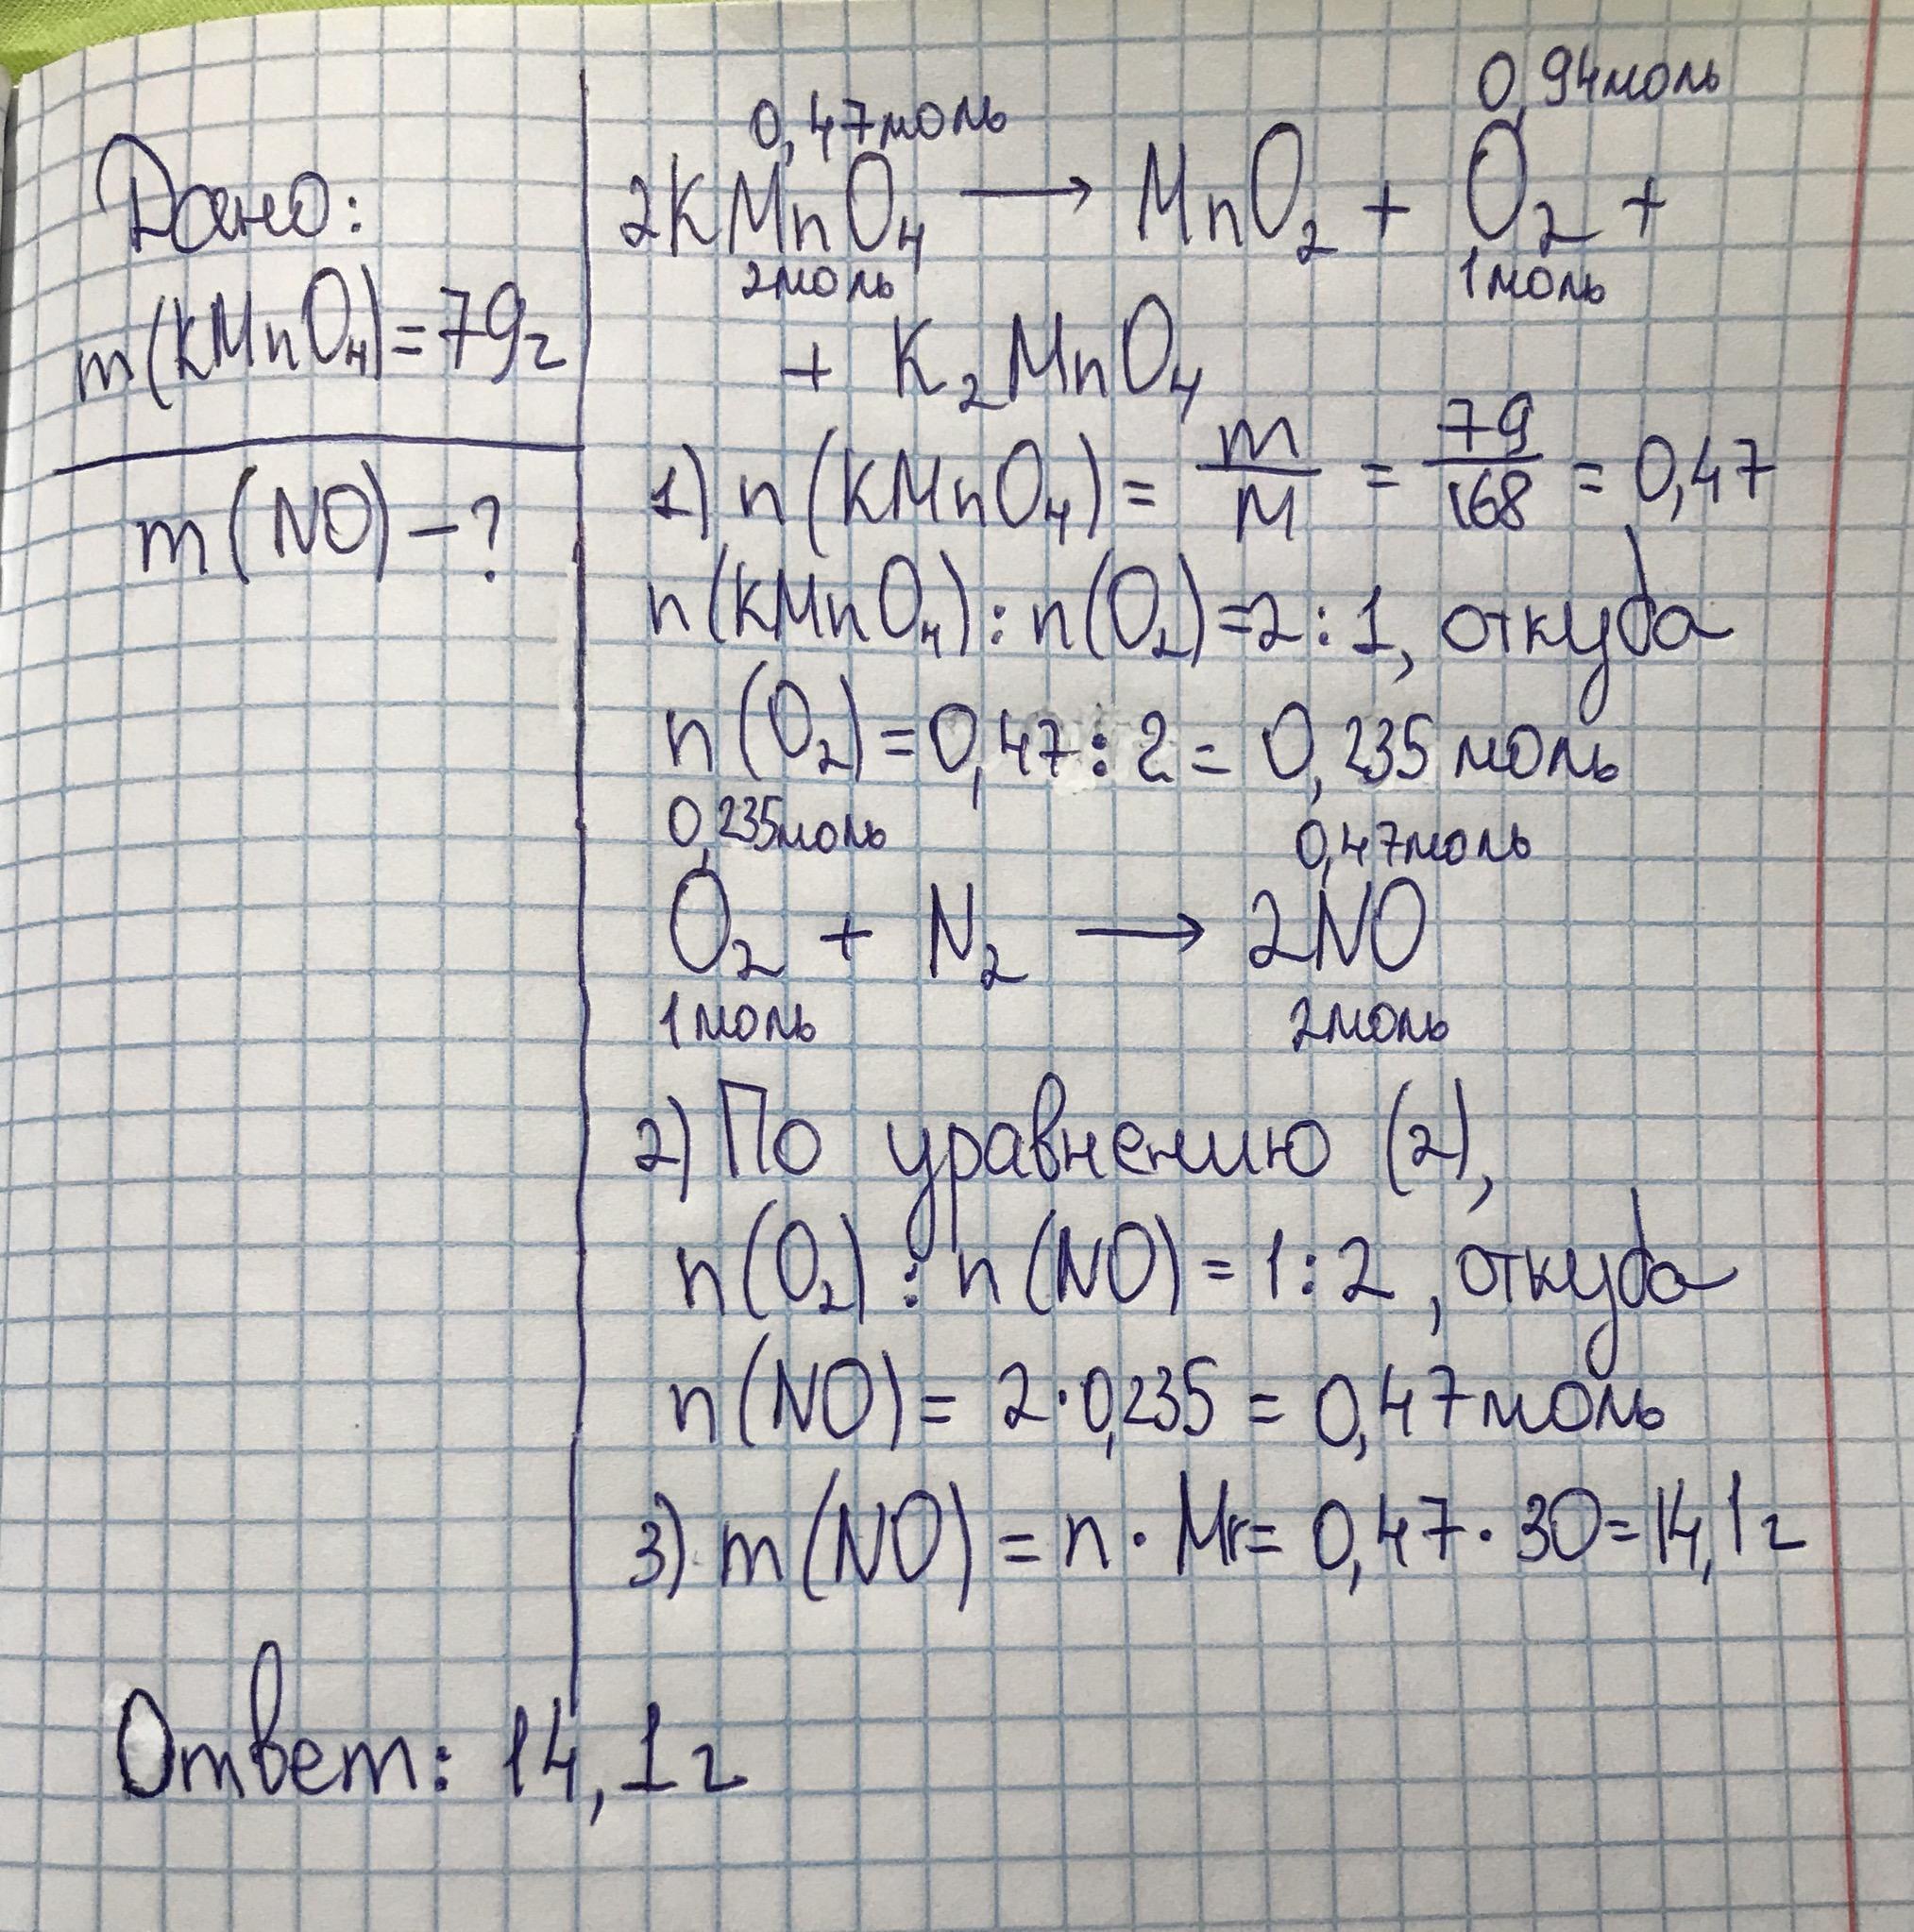 Дано:
m(KMnO₄)=79г
m(NO)-?
0,47моль 0,94моль
2KMnO₄ → MnO₂ + O₂ +
2моль 1моль
+ K₂MnO₄
1) n(KMnO₄) = m/M = 79/168 = 0,47
n(KMnO₄):n(O₂)=2:1, откуда
n(O₂)=0,47:2=0,235 моль
0,235моль 0,47моль
O₂ + N₂ → 2NO
1моль 2моль
2) По уравнению (2),
n(O₂):n(NO)=1:2, откуда
n(NO)=2·0,235=0,47моль
3) m(NO)=n·Mr=0,47·30=14,1г
Ответ: 14,1г